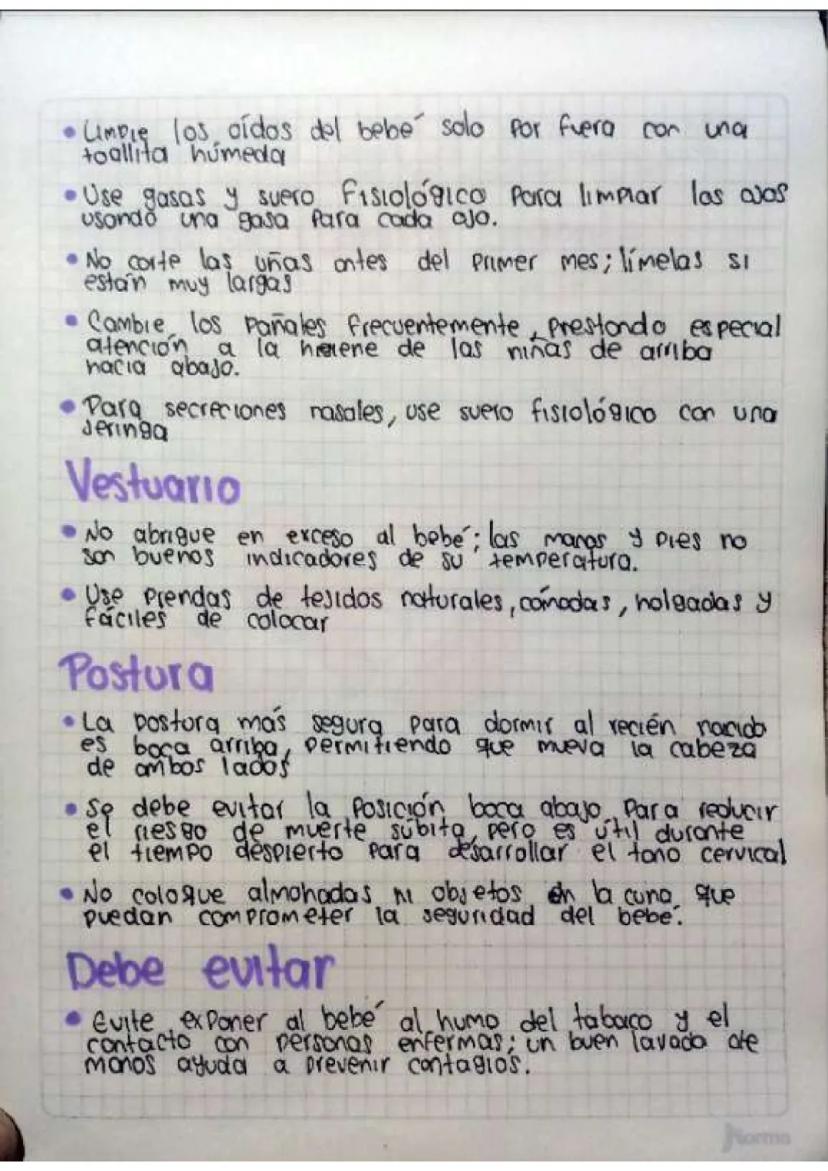 • Limpie los oídos del bebé solo por fuera con una
toallita húmeda
• Use gasas y suero fisiológico para limpiar los ojos
usando una gasa para cada ojo.
• No corte las uñas antes del primer mes; límelas si
están muy largas
• Cambie los pañales frecuentemente, prestando especial
atención a la higiene de las niñas de arriba
hacia abajo.
• Para secreciones nasales, use suero fisiológico con una
jeringa
Vestuario
• No abrigue en exceso al bebé; las manos y pies no
son buenos indicadores de su temperatura.
• Use prendas de tejidos naturales, cómodas, holgadas y
fáciles de colocar
Postura
• La postura más segura para dormir al recién nacido
es boca arriba, permitiendo que mueva la cabeza
de ambos lados
• Se debe evitar la posición boca abajo para reducir
el riesgo de muerte súbita, pero es útil durante
el tiempo despierto para desarrollar el tono cervical
• No coloque almohadas ni objetos en la cuna que
puedan comprometer la seguridad del bebé.
Debe evitar
• Evite exponer al bebé al humo del tabaco y el
contacto con personas enfermas; un buen lavado de
manos ayuda a prevenir contagios.
Norma